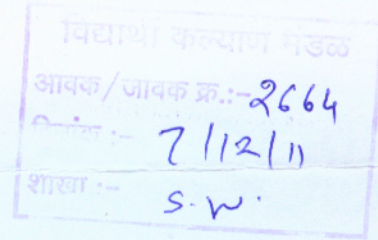 विद्यार्थी कल्याण मंडळ
आवक/जावक क्र.:- 2664
दिनांक :- 7/12/11
शाखा :- S.W.